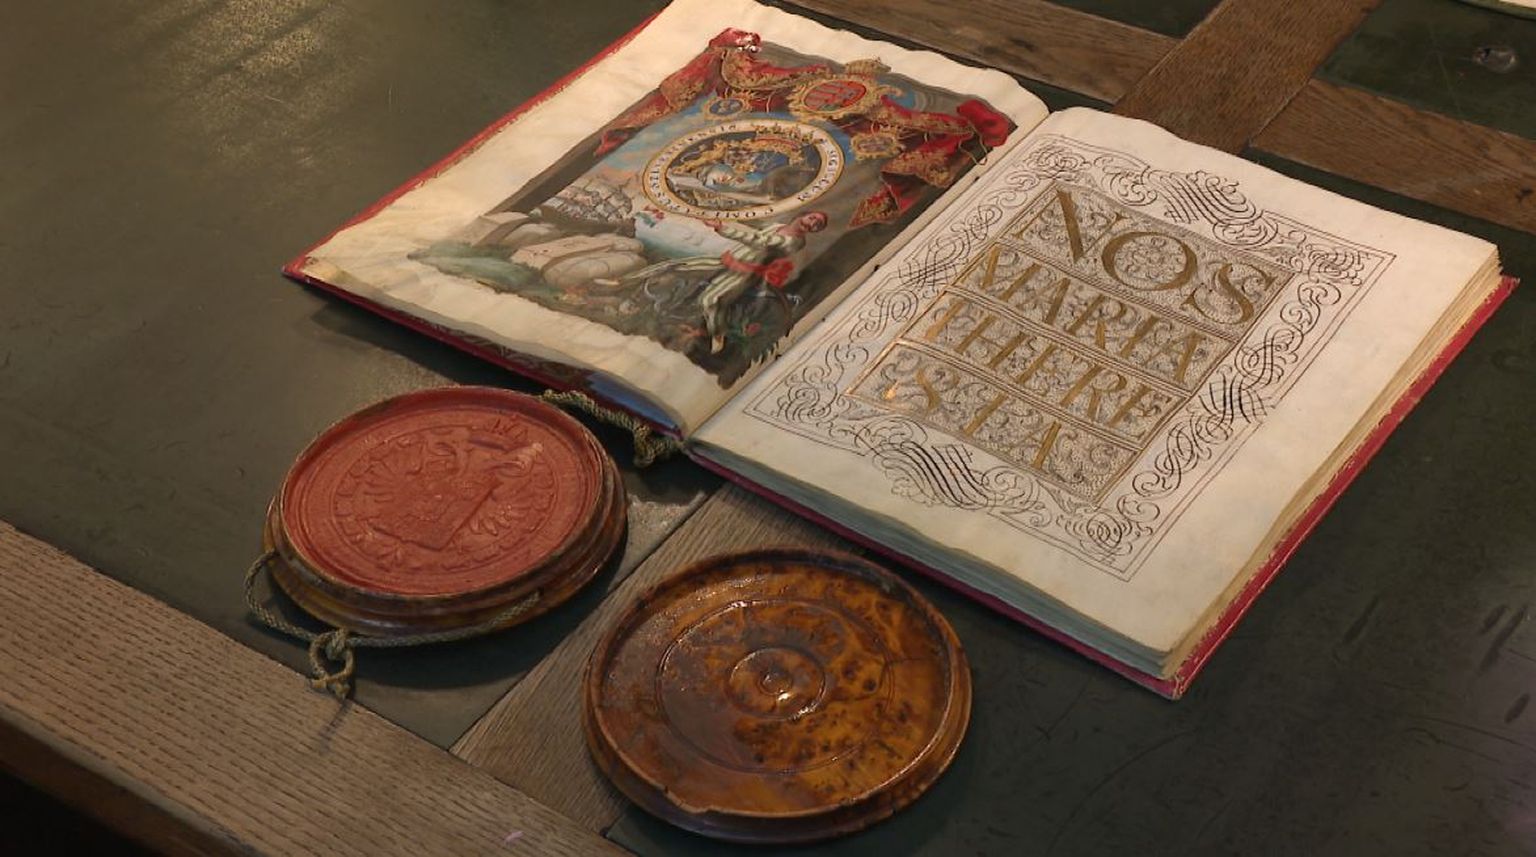 NOS
MARIA
THERE
SIA